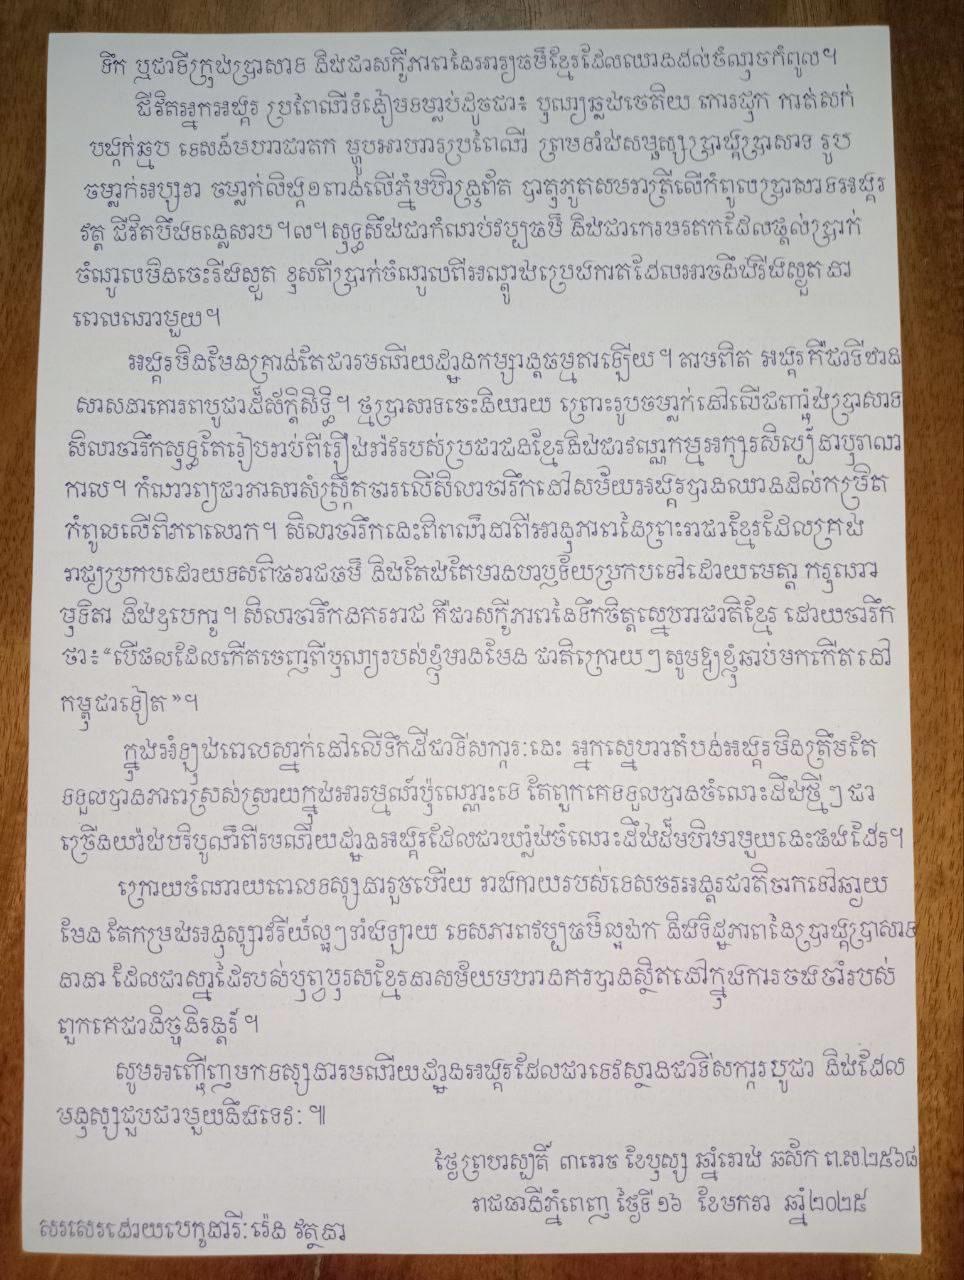 ទឹក ឬជាទីក្រុងប្រាសាទ និងជាសក្ខីភាពនៃអារ្យធម៌ខ្មែរដែលឈានដល់ចំណុចកំពូល។
ជីវិតអ្នកអង្គរ ប្រពៃណីទំនៀមទម្លាប់ដូចជា៖ បុណ្យឆ្លងចេតិយ កោរជុក កាត់សក់
បង្កក់ឆ្មប ទេសន៍មហាជាតក ម្ហូបអាហារប្រពៃណី ព្រមទាំងសម្ផស្សប្រាង្គប្រាសាទ រូប
ចម្លាក់អប្សរា ចម្លាក់លិង្គ១ពាន់លើភ្នំមហិន្ទ្រព័ត បាតុភូតសមរាត្រីលើកំពូលប្រាសាទអង្គរ
វត្ត ជីវិតបឹងទន្លេសាប។ល។ សុទ្ធសឹងជាកំណប់វប្បធម៌ និងជាកេរមរតកដែលផ្តល់ប្រាក់
ចំណូលមិនចេះរីងស្ងួត ខុសពីប្រាក់ចំណូលពីអណ្តូងប្រេងកាតដែលអាចនឹងរីងស្ងួតនា
ពេលណាមួយ។
អង្គរមិនមែនគ្រាន់តែជារមណីយដ្ឋានកម្សាន្តធម្មតាឡើយ។ តាមពិត អង្គរគឺជាទីឋាន
សាសនាគោរពបូជាដ៏ស័ក្តិសិទ្ធិ។ ថ្មប្រាសាទចេះនិយាយ ព្រោះរូបចម្លាក់នៅលើជញ្ជាំងប្រាសាទ
សិលាចារឹកសុទ្ធតែរៀបរាប់ពីរឿងរ៉ាវរបស់ប្រជាជនខ្មែរនិងជាវណ្ណកម្មអក្សរសិល្ប៍នាបុរាណ
កាល។ កំណាព្យជាភាសាសំស្ក្រឹតចារលើសិលាចារឹកនៅសម័យអង្គរបានឈានដល់កម្រិត
កំពូលលើពិភពលោក។ សិលាចារឹកនេះពិពណ៌នាពីអានុភាពនៃព្រះរាជាខ្មែរដែលគ្រង
រាជ្យប្រកបដោយទសពិធរាជធម៌ និងតែងតែមានហឫទ័យប្រកបទៅដោយមេត្តា ករុណា
មុទិតា និងឧបេក្ខា។ សិលាចារឹកនគររាជ គឺជាសក្ខីភាពនៃទឹកចិត្តស្នេហាជាតិខ្មែរ ដោយចារឹក
ថា៖ “បើផលដែលកើតចេញពីបុណ្យរបស់ខ្ញុំមានមែន ជាតិក្រោយៗ សូមឱ្យខ្ញុំឆាប់មកកើតនៅ
កម្ពុជាទៀត”។
ក្នុងអំឡុងពេលស្នាក់នៅលើទឹកដីជាទីសក្ការៈនេះ អ្នកស្នេហាតំបន់អង្គរមិនត្រឹមតែ
ទទួលបានភាពស្រស់ស្រាយក្នុងអារម្មណ៍ប៉ុណ្ណោះទេ តែពួកគេទទួលបានចំណេះដឹងថ្មីៗ ជា
ច្រើនយ៉ាងបរិបូណ៌ពីរមណីយដ្ឋានអង្គរដែលជាឃ្លាំងចំណេះដឹងដ៏មហិមាមួយនេះផងដែរ។
ក្រោយចំណាយពេលទស្សនារួចហើយ រាងកាយរបស់ទេសចរអន្តរជាតិចាកទៅឆ្ងាយ
មែន តែកម្រងអនុស្សាវរីយ៍ល្អៗទាំងឡាយ ទេសភាពវប្បធម៌ល្អឯក និងទិដ្ឋភាពនៃប្រាង្គប្រាសាទ
នានា ដែលជាស្នាដៃរបស់បុព្វបុរសខ្មែរនាសម័យមហានគរបានស្ថិតនៅក្នុងការចងចាំរបស់
ពួកគេជានិច្ចនិរន្តរ៍។
សូមអញ្ជើញមកទស្សនារមណីយដ្ឋានអង្គរដែលជាទេវស្ថានជាទីសក្ការបូជា និងដែល
មនុស្សជួបជាមួយនឹងទេវៈ៕
ថ្ងៃព្រហស្បតិ៍ ៣រោច ខែបុស្ស ឆ្នាំរោង ឆស័ក ព.ស២៥៦៨
រាជធានីភ្នំពេញ ថ្ងៃទី១៦ ខែមករា ឆ្នាំ២០២៥
សរសេរដោយបេក្ខនារីៈ រ៉េន វត្ថនា